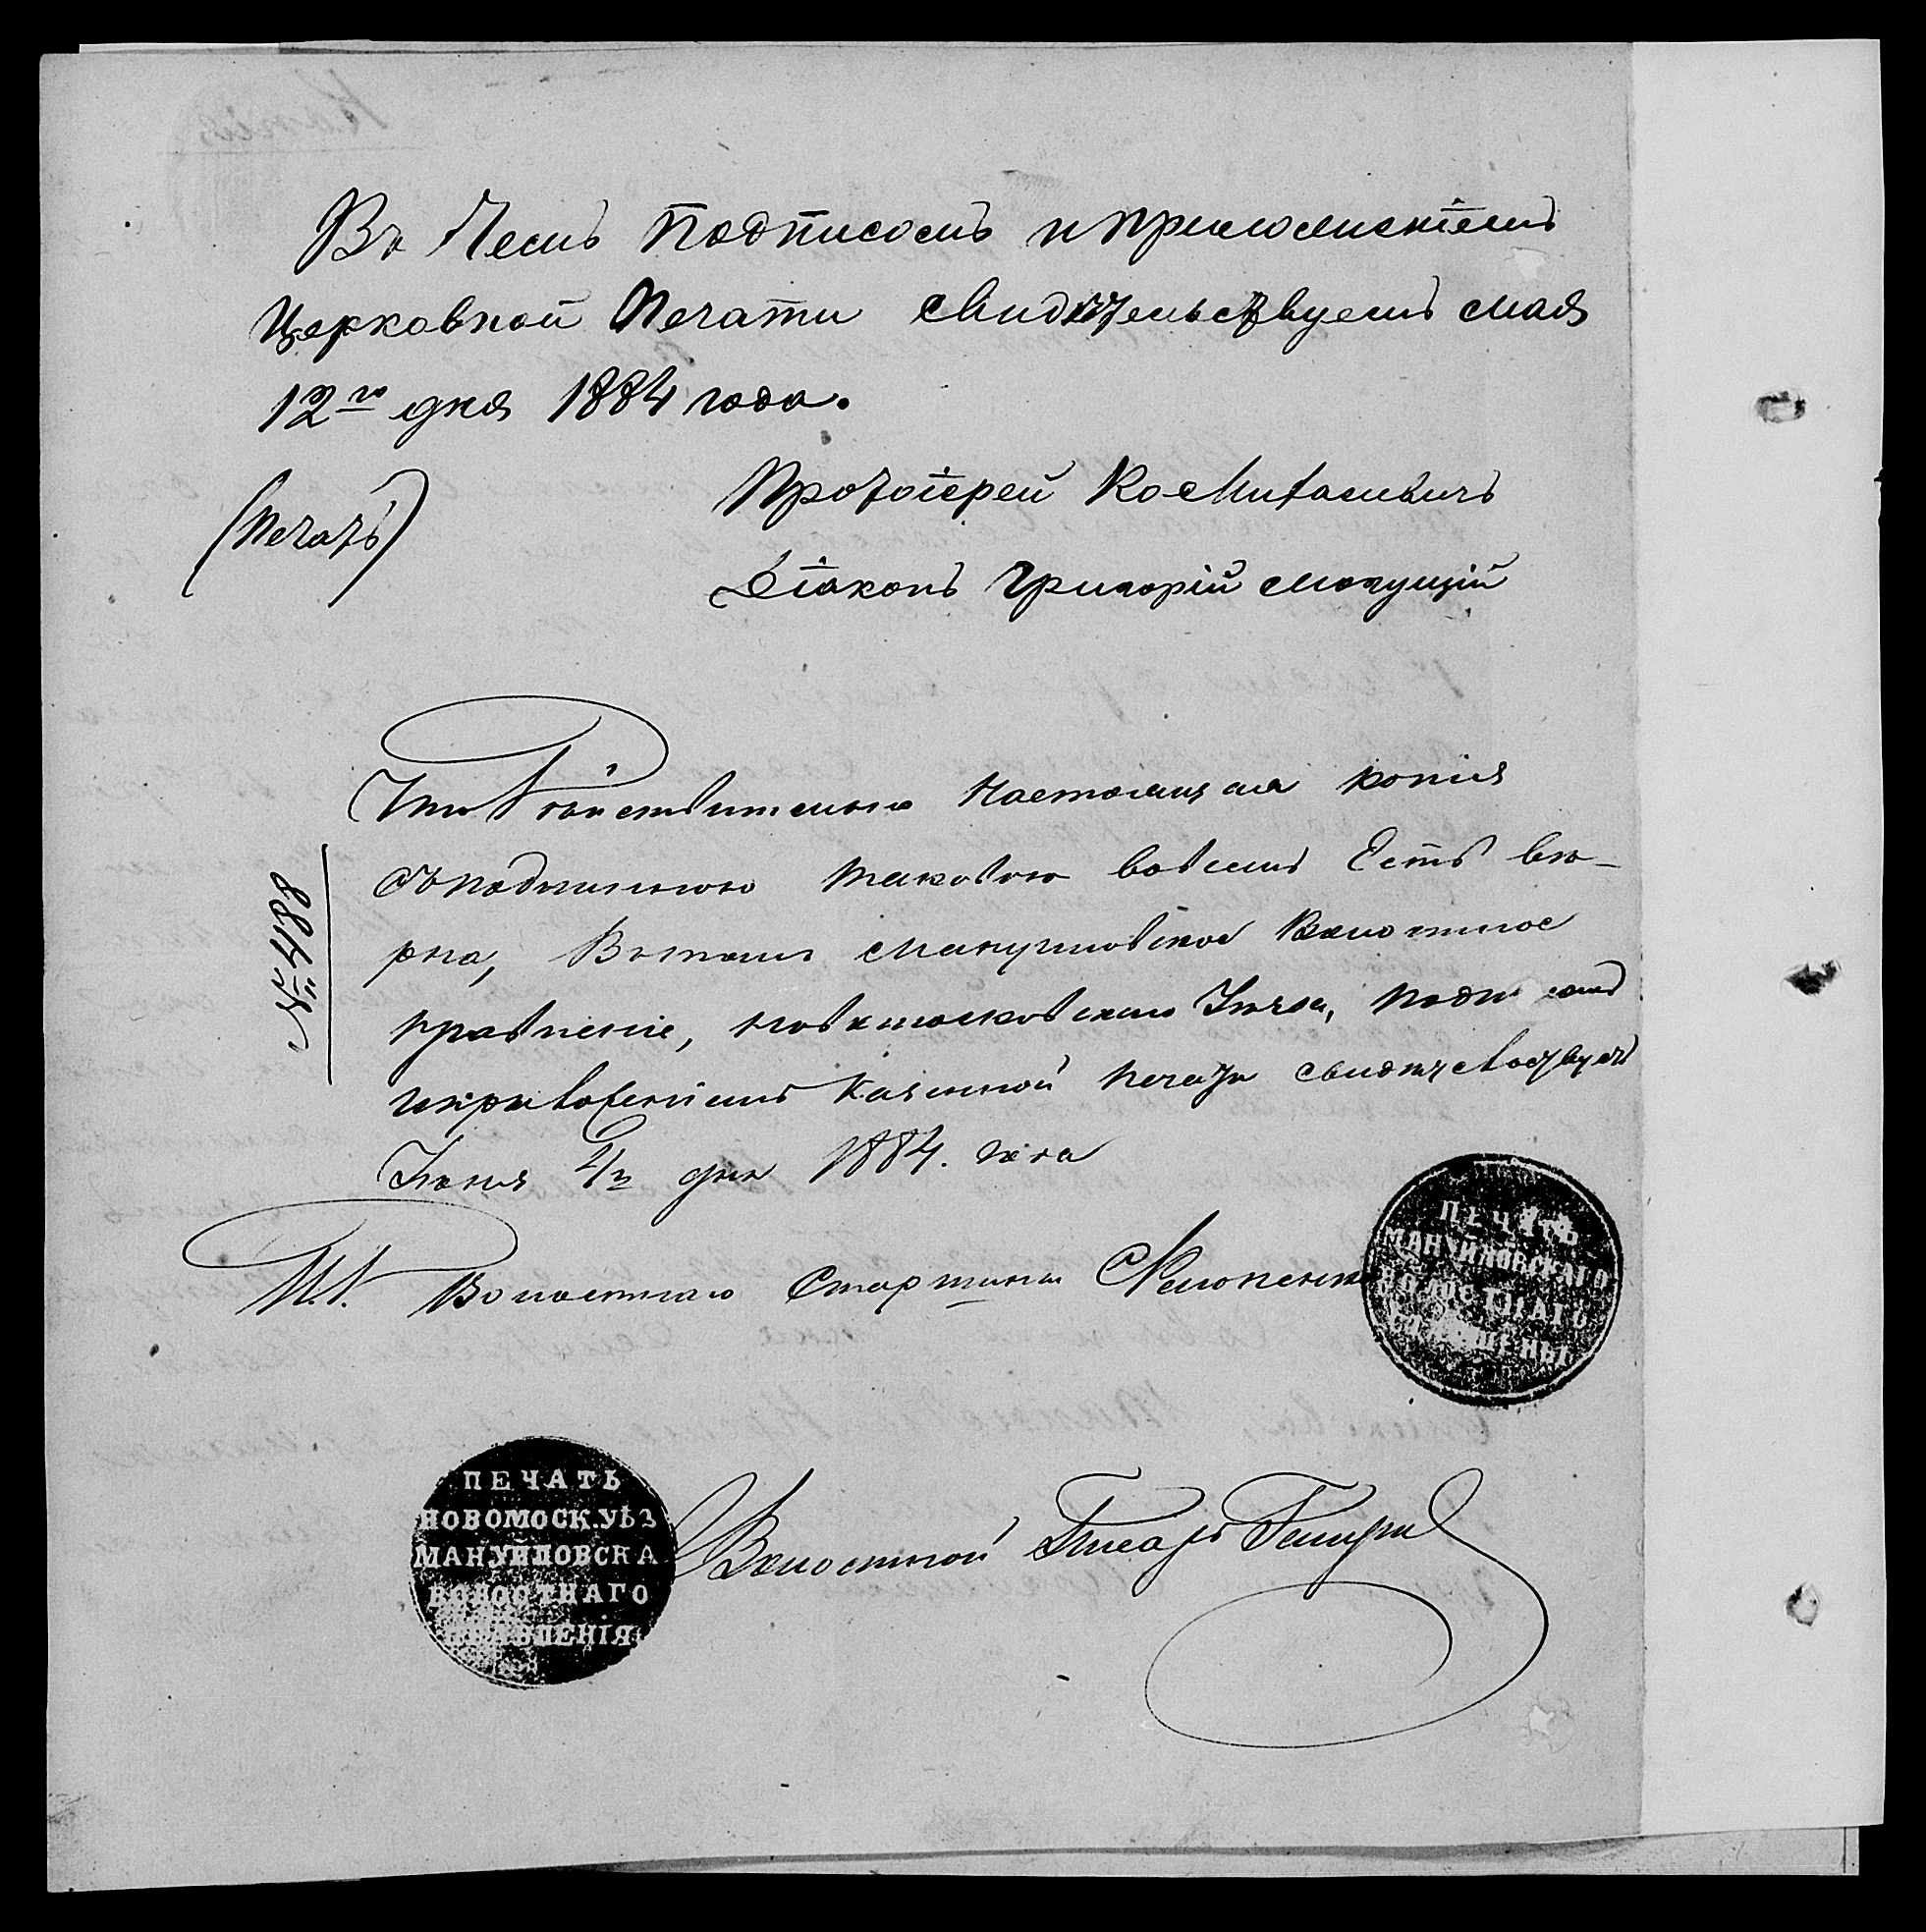 Въ чемъ подписомъ и приложеніемъ
Церковной Печати свидѣтельствуемъ мая
12го дня 1884 года.
(Печать)
Протоіерей
Діаконъ Григорій Мокущій
Что действительно настоящая копія
съ подлинною таковою во всемъ Есть вѣ-
рна, въ томъ Мануиловское Волостное
правленіе, Новомосковскаго Уѣзда,
и приложеніемъ Казенной печати
№ 488
Іюня дня 1884. года
И.д. Волостнаго Старшины
ПЕЧАТЬ
МАНУИЛОВСКАГО
ВОЛОСТНАГО
СТАРШИНЫ
ПЕЧАТЬ
НОВОМОСК.УѢЗ
МАНУЙЛОВСКА
ВОЛОСТНАГО
ПРАВЛЕНІЯ
Волостной Писарь